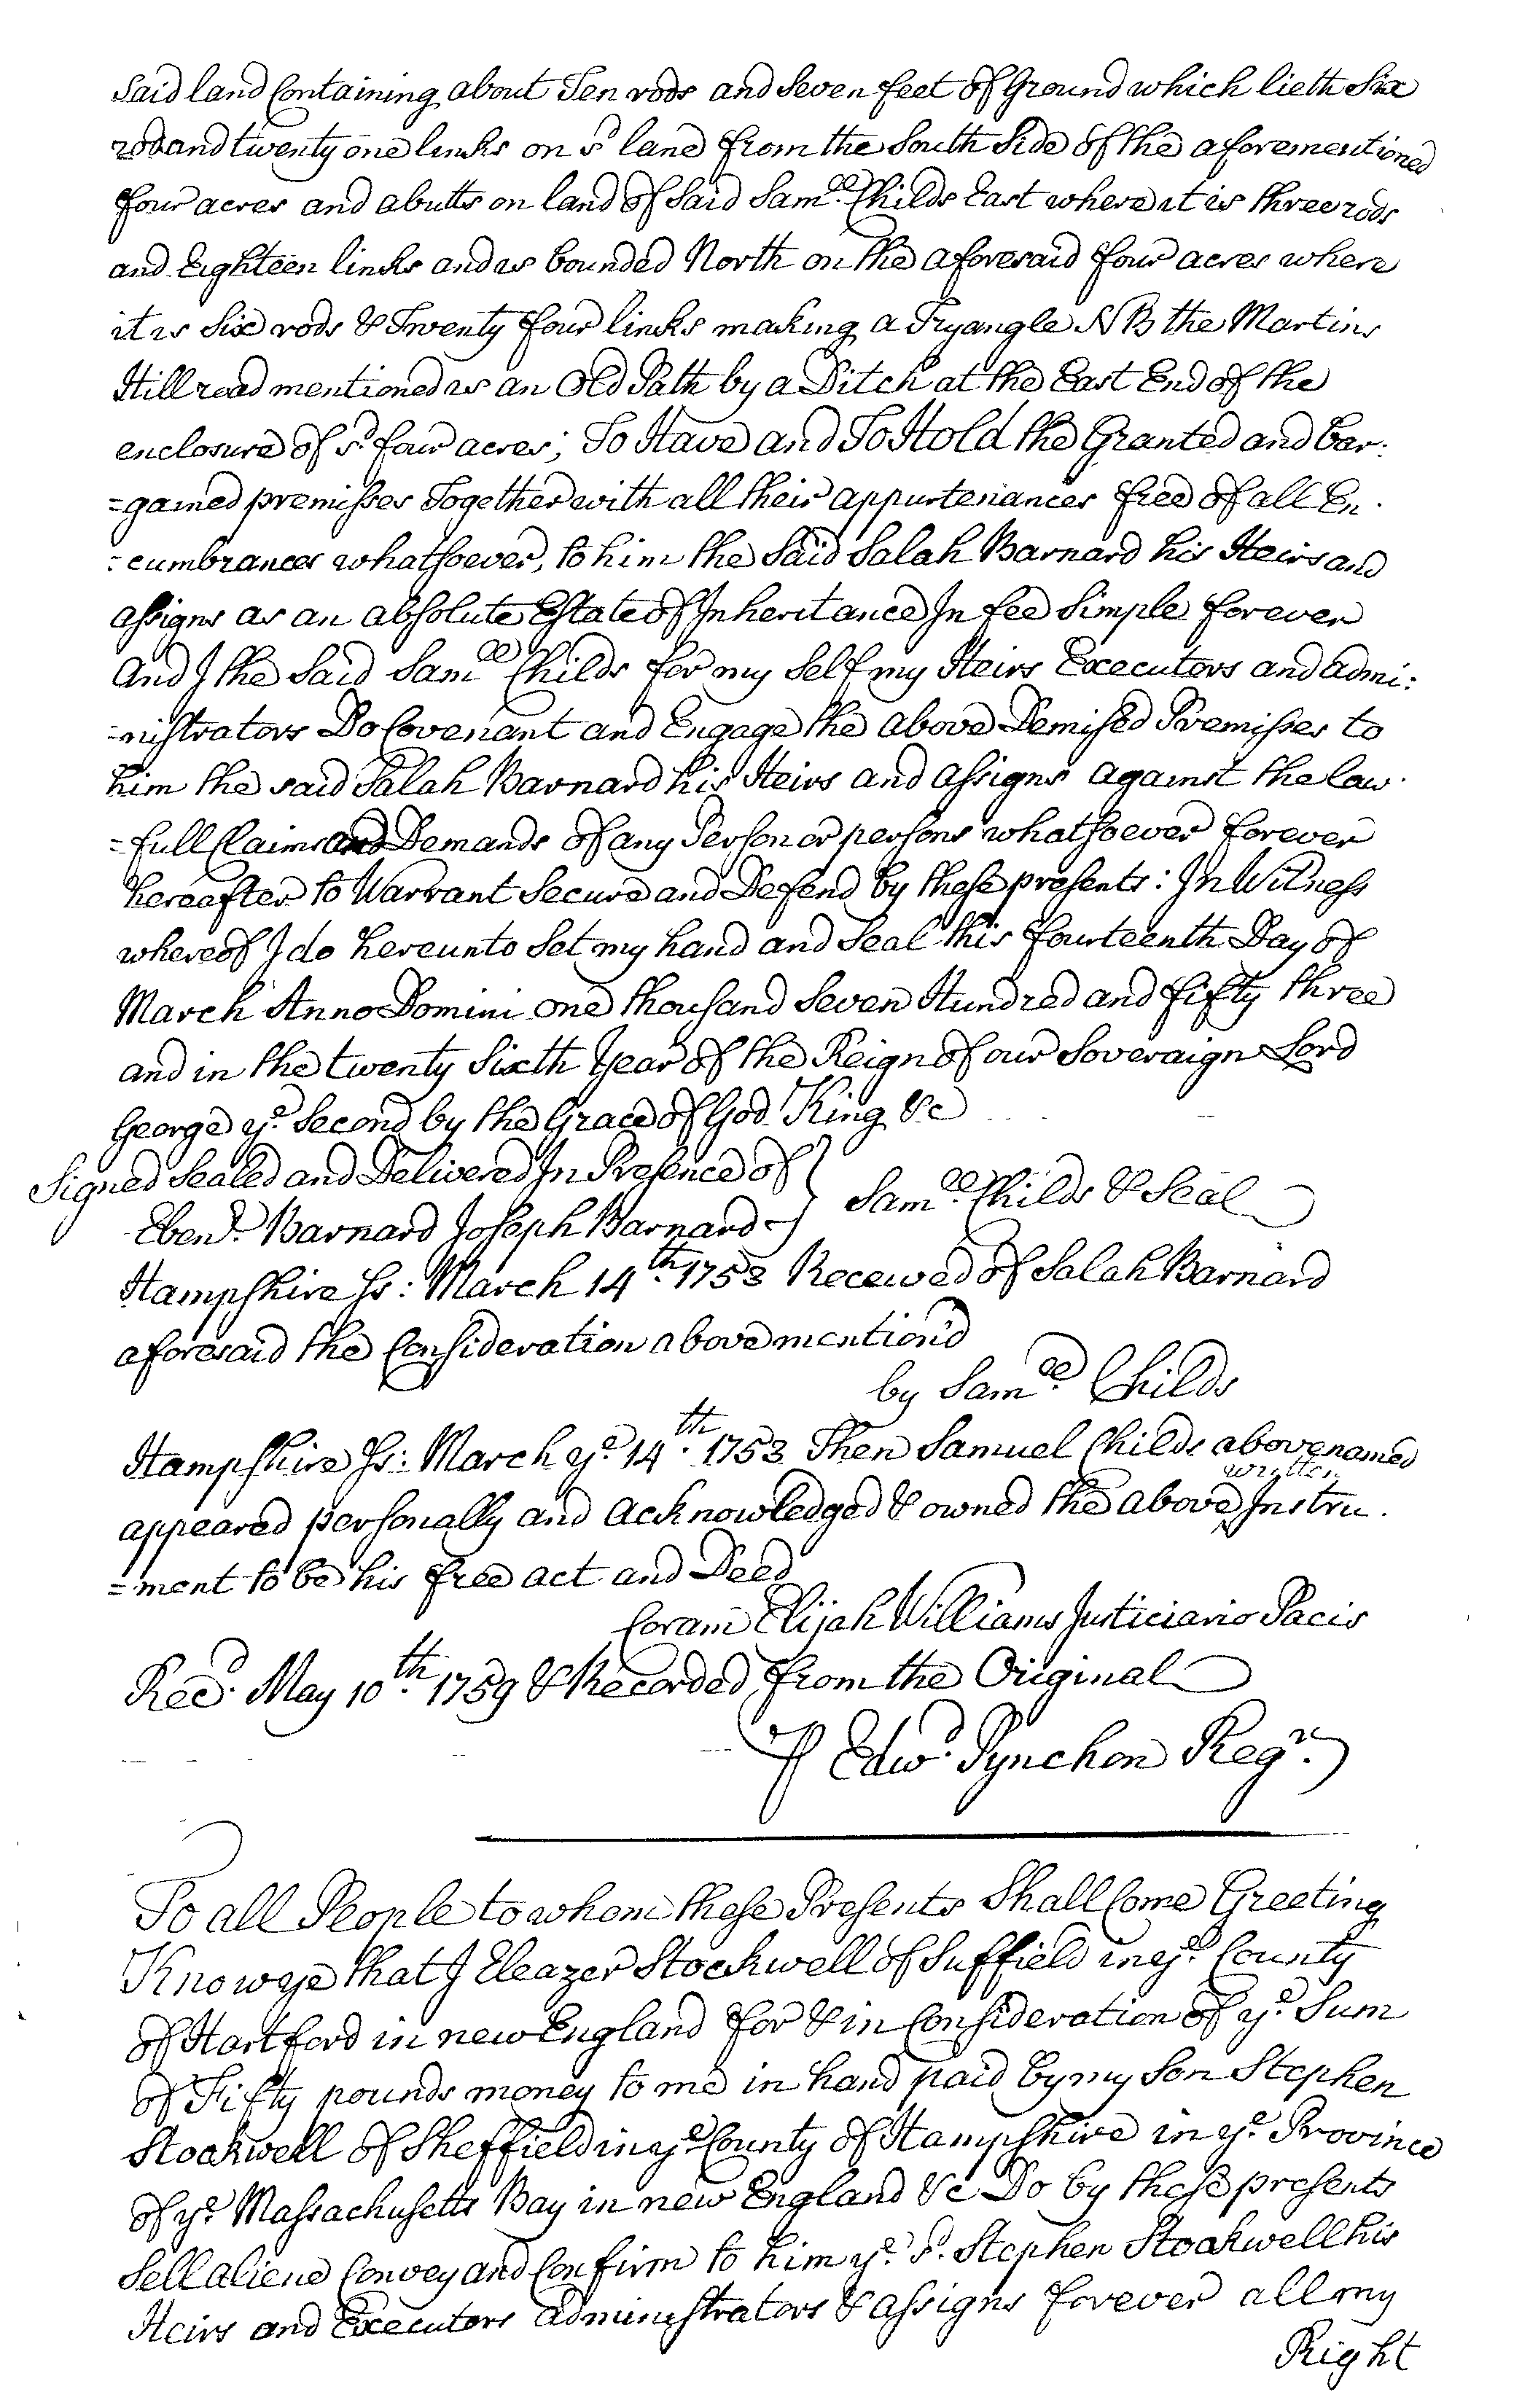 said land Containing about Ten rods and Seven feet of Ground which lieth Six
rod and twenty one links on sd lane from the South Side of the aforementioned
four acres and abutts on land of Said Samll Childs East where it is three rods
and Eighteen links and is bounded North on the aforesaid four acres where
it is Six rods & Twenty four links making a Tryangle N B the Martins
Hill road mentioned is an Old Path by a Ditch at the East End of the
enclosure of sd four acres; To Have and To Hold the Granted and bar:
=gained premisses Together with all their appurtenances free of all En.
:cumbrances whatsoever, to him the Said Salah Barnard his Heirs and
assigns as an absolute Estate of Inheritance In fee Simple forever
And I the Said Samll Childs for my Self my Heirs Executors and admi:
=nistrators Do Covenant and Engage the above Demised Premisses to
him the said Salah Barnard his Heirs and assigns against the law.
=full Claims and Demands of any Person or persons whatsoever forever
hereafter to Warrant Secure and Defend by these presents: In Witness
whereof I do hereunto Set my hand and Seal this fourteenth Day of
March Anno Domini one thousand Seven Hundred and fifty three
and in the twenty Sixth Year of the Reign of our Soveraign Lord
George ye Second by the Grace of God King &c
Signed Sealed and Delivered In Presence of } Samll Childs & Seal
Ebenr Barnard Joseph Barnard
Hampshire Ss: March 14th. 1753 Received of Salah Barnard
aforesaid the Consideration above mention'd
by Samll Childs
Hampshire Ss: March ye 14th. 1753 Then Samuel Childs above named
appeared personally and acknowledged & owned the above written Instru.
=ment to be his free act and Deed
Coram Elijah Williams Justiciario Pacis
Recd. May 10th. 1759 & Recorded from the Original
P Edwd. Pynchon Regr.
To all People to whom these Presents Shall Come Greeting
Know ye that I Eleazer Stockwell of Suffield in ye County
of Hartford in new England for & in Consideration of ye Sum
of Fifty pounds money to me in hand paid by my Son Stephen
Stockwell of Sheffield in ye County of Hampshire in ye Province
of ye Massachusetts Bay in new England &c Do by these presents
Sell aliene Convey and Confirm to him ye sd. Stephen Stockwell his
Heirs and Executors administrators & assigns forever all my
Right